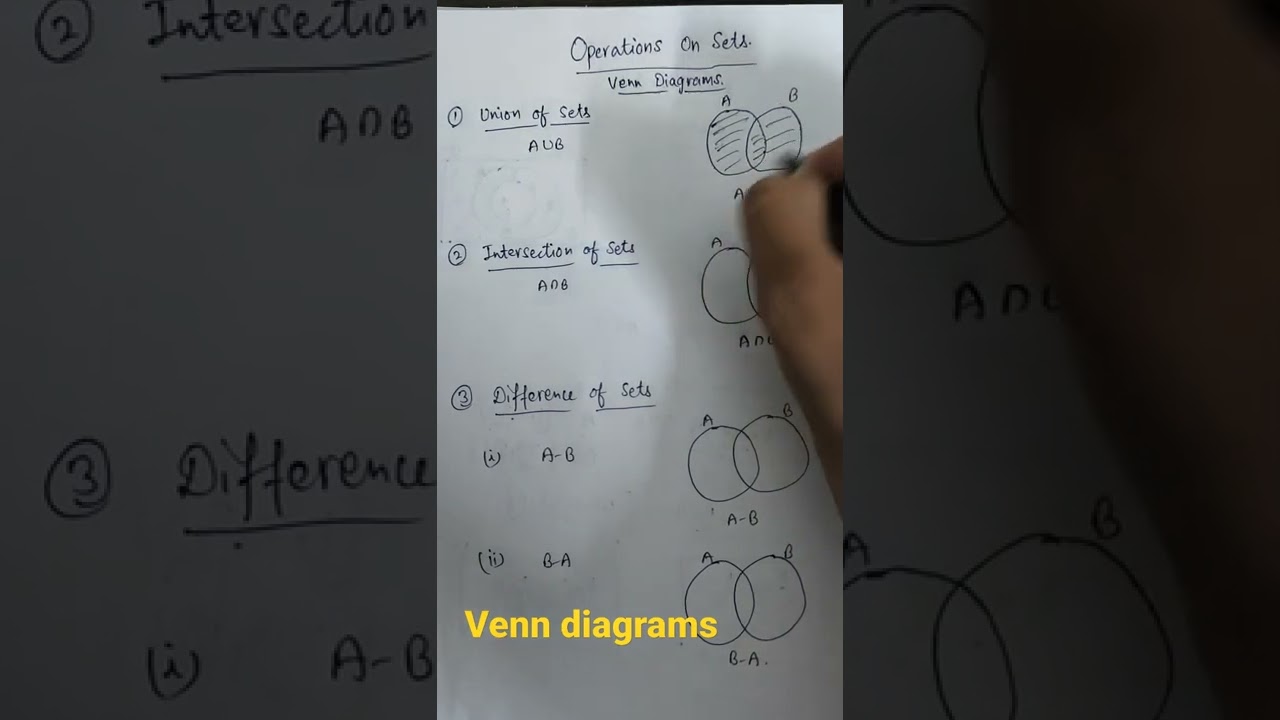 Operations On Sets.
Venn Diagrams.
① Union of Sets
A∪B
A B
A
② Intersection of Sets
A∩B
A
A∩
③ Difference of Sets
(i) A-B
A B
A-B
(ii) B-A
A B
B-A.
Venn diagrams
② Intersection
A∩B
③ Difference
(i) A-B
A∩
A B